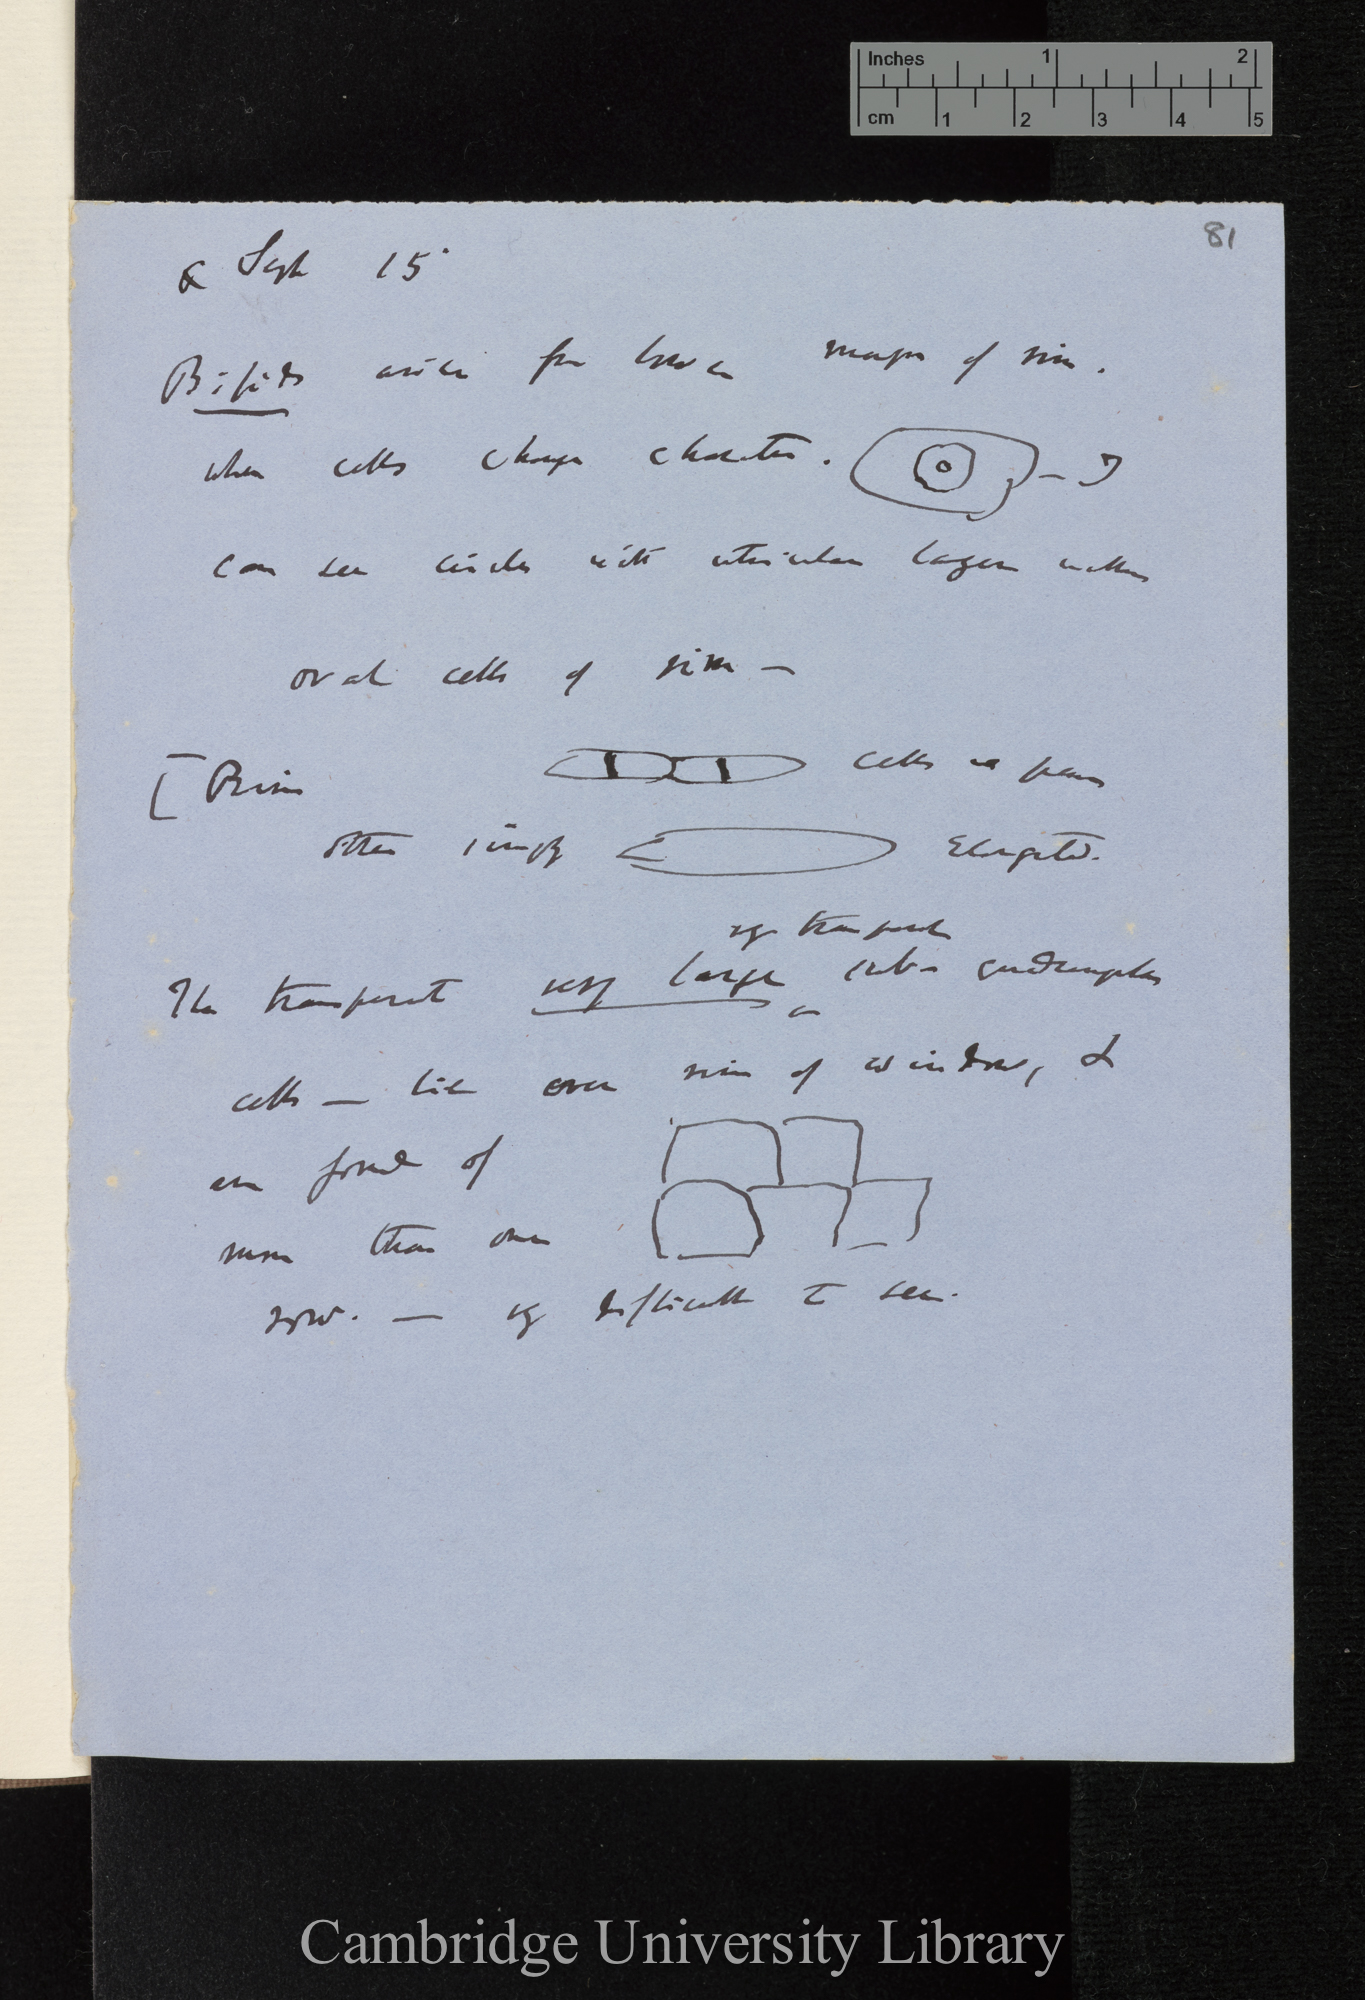 Inches 1 2
cm 1 2 3 4 5
81
& Sept 15
Bifids arise from lower margin of rim.
when cells change character.
can see circles with utricular layer within
oval cells of rim —
[ Rim cells in pairs
often simply Elongated.
transparent
The transparent very large sub-quadrangular
cells — lie over rim of window, &
are formed of
more than one
row. — difficult to see.
Cambridge University Library